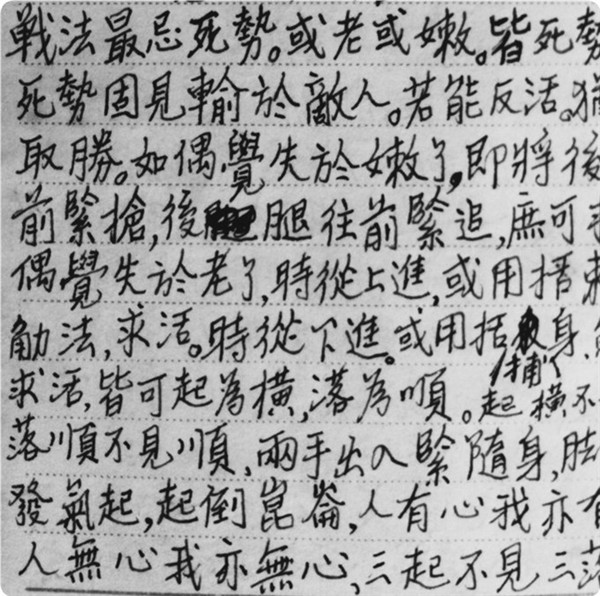 戦法最忌死勢。或老或嫩。皆死勢
死勢固見輸於敵人。若能反活。猶
取勝。如偶覺失於嫩了,即將後
前緊搶,後腿往前緊追,庶可
偶覺失於老了,時從上進,或用捂
勈法,求活。時從下進。或用括身,
捕
求活,皆可起為橫,落為順。起橫不
落順不見順,兩手出入緊隨身,
發氣起,起倒崑崙,人有心我亦有
人無心我亦無心,三起不見三落